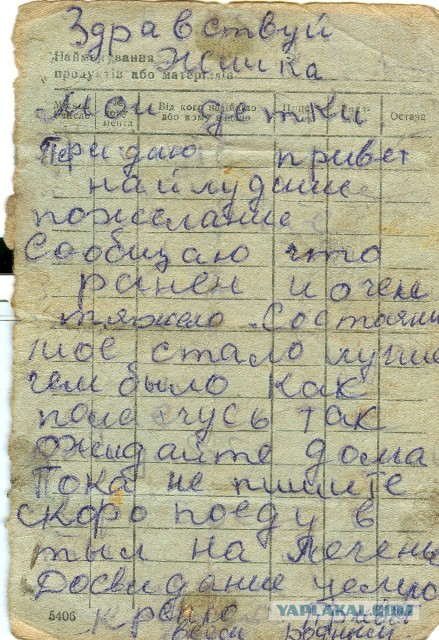 Здравствуй
Найменування
Жинка
продуктов або матеріялів
Мои детки
Від кого надійшло
або кому видано
Остача
Придаю привет
найлудшие
пожелание
Сообщаю что
ранен и очень
тяжело. Состояни
мое стало лучше
чем было как
полечусь так
ожидайте дома
Пока не пишите
скоро поеду в
тыл на лечень
Досвидание целую
5406
крепко привет
всем родным
YAPLAKAL.COM